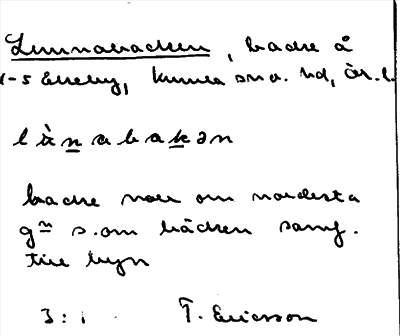 Linnabacken, backe å
1-5 Elleby, Kumla sn
l ì n a b a k ə n
backe norr om nordesta
g~ s.om bäcken samf.
till byn
3:1 T. Ericsson